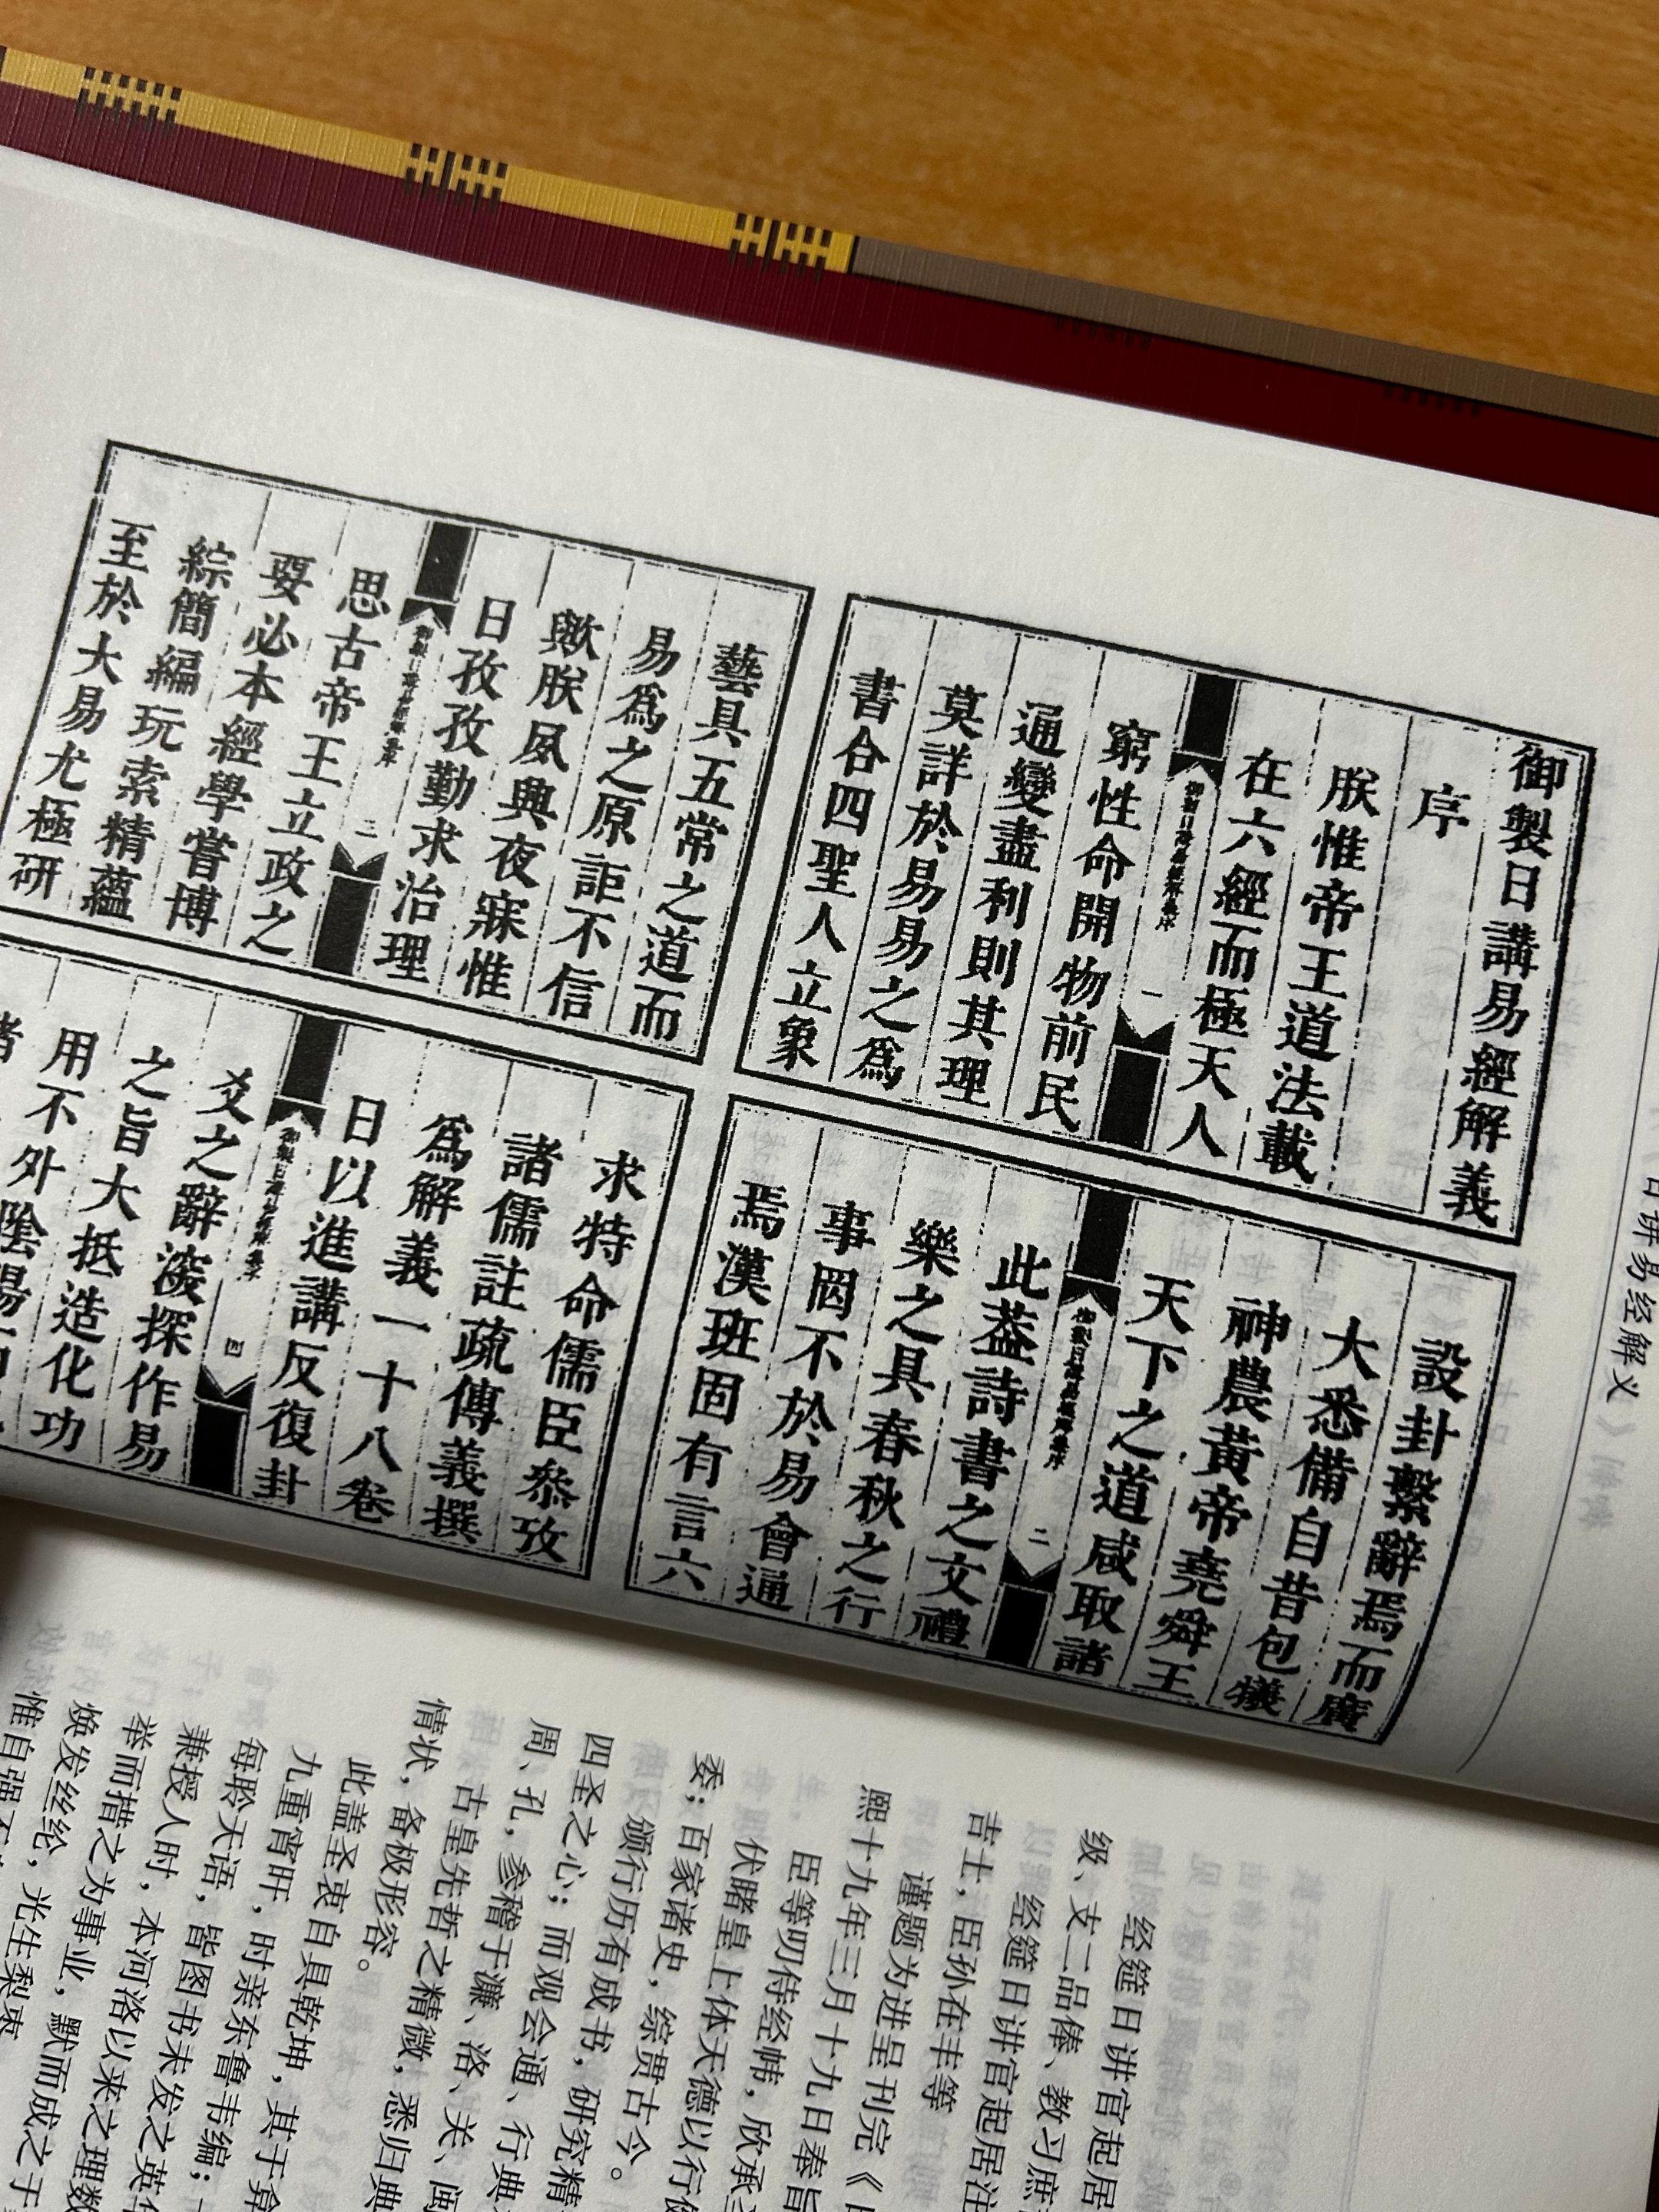 御製日講易經解義
序
朕惟帝王道法載
在六經而極天人
御製日講易經解義序
一
窮性命開物前民
通變盡利則其理
莫詳於易易之為
書合四聖人立象
設卦繫辭焉而廣
大悉備自昔包犧
神農黃帝堯舜王
天下之道咸取諸
御製日講易經解義序
二
此葢詩書之文禮
樂之具春秋之行
事罔不於易會通
焉漢班固有言六
藝具五常之道而
易為之原詎不信
歟朕夙興夜寐惟
日孜孜勤求治理
御製日講易經解義序
三
思古帝王立政之
要必本經學嘗博
綜簡編玩索精蘊
至於大易尤極研
求特命儒臣叅攷
諸儒註疏傳義撰
為解義一十八卷
日以進講反復卦
御製日講易經解義序
四
爻之辭深探作易
之旨大抵造化功
用不外陰陽
日讲易经解义》
经筵日讲官起居
级、支二品俸、教习庶
经筵日讲官起居注
吉士，臣孙在丰等
谨题为进呈刊完《
熙十九年三月十九日奉旨
臣等叨侍经帏，欣承
伏睹皇上体天德以行
委；百家诸史，综贯古今。
颁行历有成书，研究精
四圣之心；而观会通、行典
周、孔，参稽于濂、洛、关、闽
古皇先哲之精微，悉归典
情状，备极形容。
此盖圣衷自具乾坤，其于
九重宵旰，时亲东鲁韦编；
每聆天语，皆图书未发之英
兼授人时，本河洛以来之理数
举而措之为事业，默而成之于
焕发丝纶，光生梨枣
惟自强不